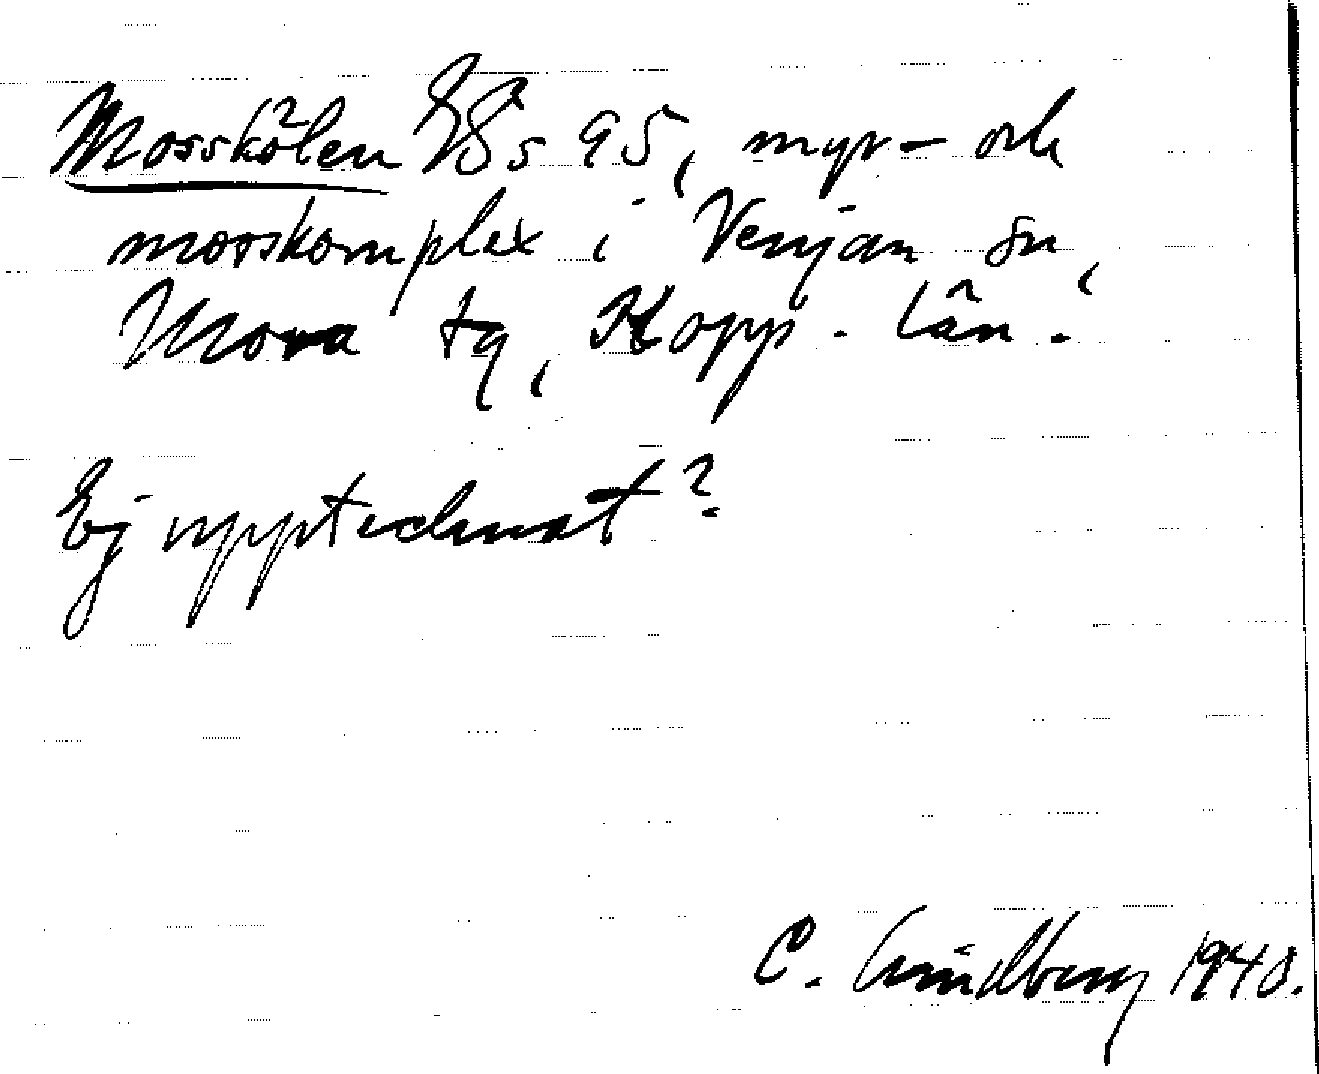 Mosskölen 78 s 95, myr- och
mosskomplex i Venjan sn,
Mora tg, Kopp. län.
Ej upptecknat?
C. Lindberg 1940.